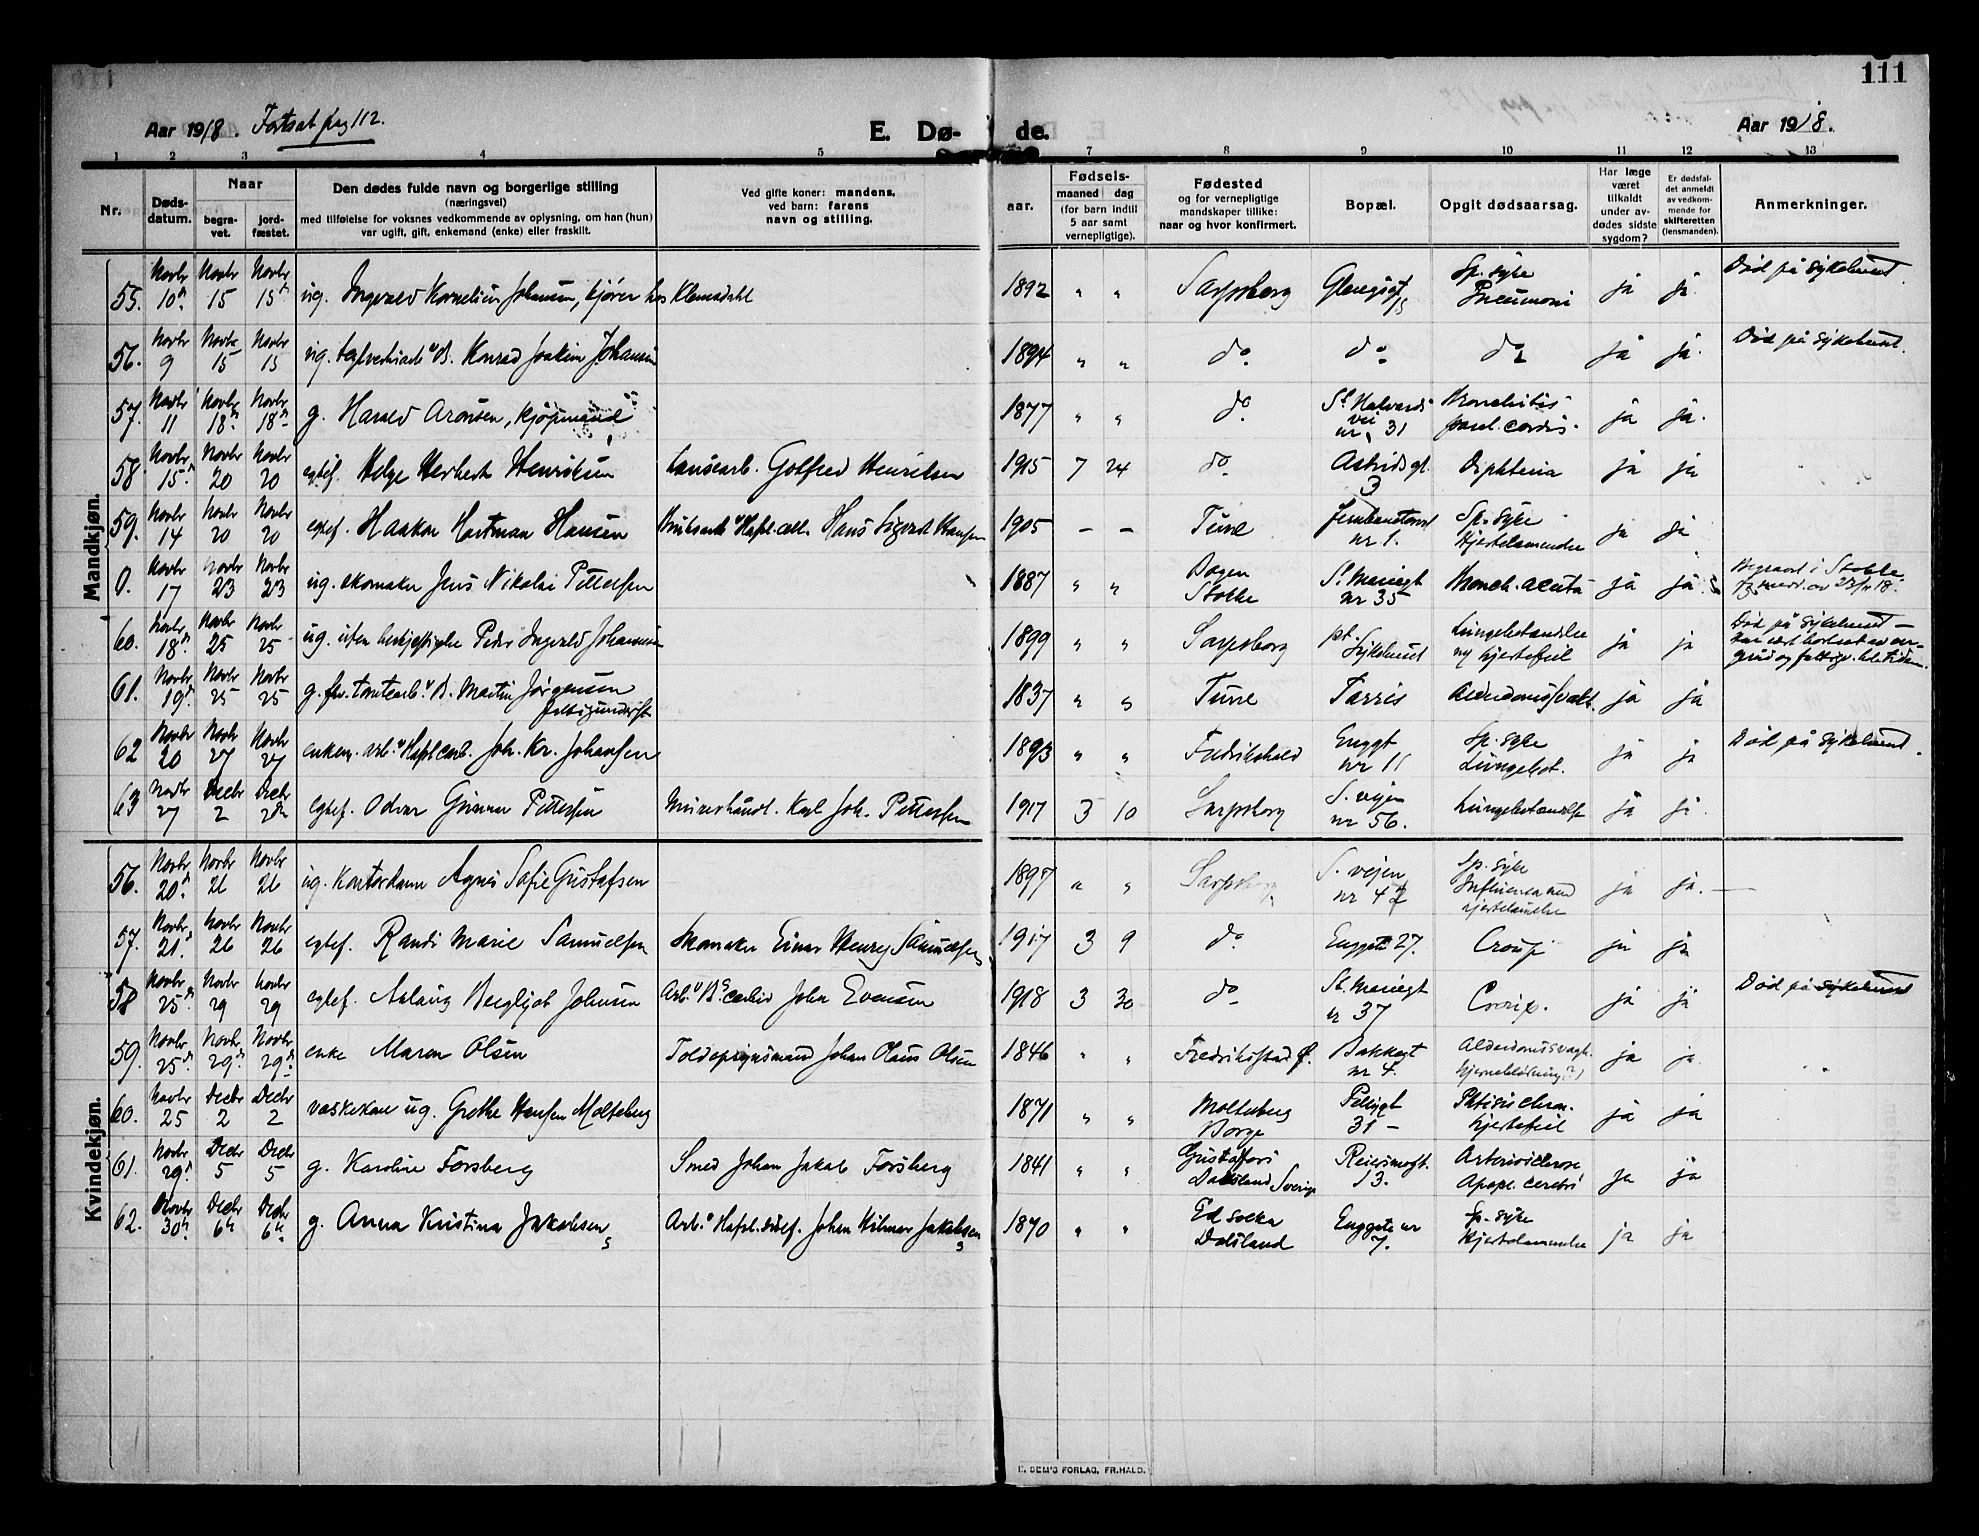 111
Aar 1918. Fortsat pag 112.
E. Døde.
Aar 1918.
1 2 3 4 5 7 8 9 10 11 12 13
Nr.
Døds-datum.
Naar
begravet.
jordfæstet.
Den dødes fulde navn og borgerlige stilling
(næringsvei)
med tilføielse for voksnes vedkommende av oplysning, om han (hun)
var ugift, gift, enkemand (enke) eller fraskilt.
Ved gifte koner: mandens,
ved barn: farens
navn og stilling.
Fødsels-
aar.
maaned dag
(for barn indtil
5 aar samt
vernepligtige).
Fødested
og for vernepligtige
mandskaper tillike:
naar og hvor konfirmert.
Bopæl.
Opgit dødsaarsag.
Har læge
været
tilkaldt
under av-
dødes sidste
sygdom?
Er dødsfal-
det anmeldt
av vedkom-
mende for
skifteretten
(lensmanden).
Anmerkninger.
Mandkjøn.
55. Novbr 10 Novbr 15 Novbr 15 ug. Ingvald Kornelius Johansen, kjører hos Klemsdahl 1892 " " Sarpsborg Sp. syke Pneumoni ja ja Død på sykehuset
56. Novbr 9 Novbr 15 Novbr 15 ug. Konrad Joakim Johansen 1894 " " do do do ja ja. Død på sykehuset.
57. Novbr 11 Novbr 18 Novbr 18 g. Harald Aronsen, kjøpmand 1877 " " do St. Halvards vei nr 31 ja ja.
58 Novbr 15 Novbr 20 Novbr 20 egtef. Helge Herbert Henriksen Golfred Henriksen 1915 7 24 do Astridsgt. 3 Diphteria ja ja
59. Novbr 14 Novbr 20 Novbr 20 egtef. Haakon Hartman Hansen Hans Sigvart Hansen 1905 – – Tune nr 1. Sp. syke Hjertelammelse ja ja
0. Novbr 17 Novbr 23 Novbr 23 ug. skomaker Jens Nikolai Pettersen 1887 " " Skolle St. Mariegt nr 35 Bronch. acuta ja ja.
60. Novbr 18 Novbr 25 Novbr 25 ug. uten beskjeftigelse Peder Ingvald Johansen 1899 " " Sarpsborg pt. Sykehuset Lungebetændelse og hjertefeil ja ja Død på sykehuset –
61. Novbr 19 Novbr 25 Novbr 25 g. Martin Jørgensen fattigunderst. 1837 " " Tune Tarris ja ja
62 Novbr 20 Novbr 27 Novbr 27 enkem. Joh. Kr. Johansen 1893 " " Fredrikshald Enggt nr 11 Sp. syke Lungebet. ja ja Død på sykehuset.
63 Novbr 27 Decbr 2 Decbr 2 egtef. Odvar Gunnar Pettersen Murerhaandl. Karl Joh. Pettersen 1917 3 10 Sarpsborg S. veien nr 56. Lungebetændelse ja ja.
Kvindekjøn.
56. Novbr 20 Novbr 26 Novbr 26 ug. Kontordame Agnes Sofie Gustafsen 1897 " " Sarpsborg S. veien nr 42 Sp. syke Influenza med hjertelammelse ja ja. –
57. Novbr 21 Novbr 26 Novbr 26 egtef. Randi Marie Samuelsen Skomaker Einar Henry Samuelsen 1917 3 9 do Enggate 27. Croup ja ja
58 Novbr 25 Novbr 29 Novbr 29 egtef. Aslaug Bergljot Johnsen John Evensen 1918 3 30 do St. Mariegt nr 37 Croup. ja ja Død på sykehuset
59. Novbr 25 Novbr 29 Novbr 29 enke Maren Olsen Toldopsynsmand Johan Olaus Olsen 1846 " " Fredriksstad Ø. Bakkegt nr 4. Alderdomssvagh. hjerneblødning(?) ja ja.
60. Novbr 25 Decbr 2 Decbr 2 vaskekone ug. Grethe Hansen Molteberg 1871 " " Molteberg Borge Pellygt 31 – Phtisis chron. hjertefeil ja ja
61. Novbr 29 Decbr 5 Decbr 5 g. Karoline Forsberg Smed Johan Jakob Forsberg 1841 " " Gustafors Dalsland Sverige 13. Arteriosclerose Apopl. cerebri ja ja
62. Novbr 30 Decbr 6 Decbr 6 g. Anna Kristina Jakobsen Johan Hilmar Jakobsen 1870 " " Dalsland Enggate nr 7. Sp. syke Hjertelammelse ja ja
E. SEM'S FORLAG, FR.HALD.